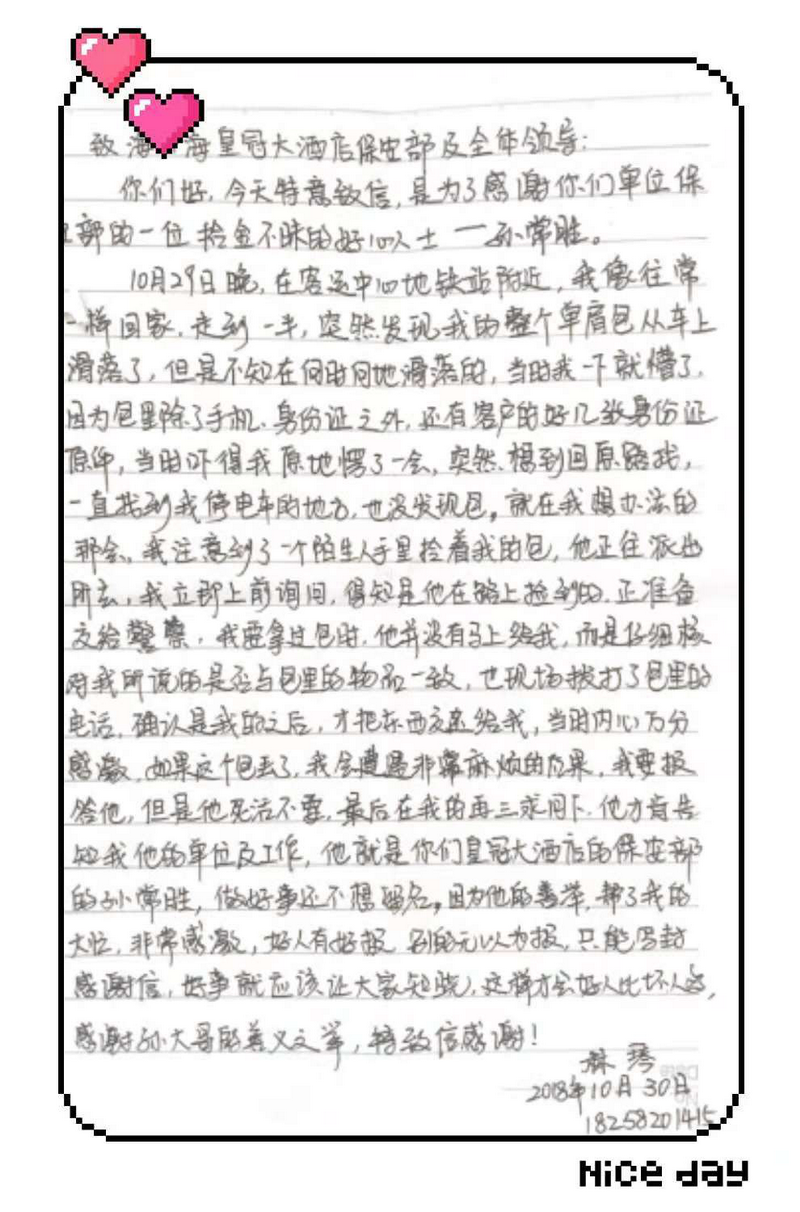 致海 海皇冠大酒店保安部及全体领导:
你们好,今天特意致信,是为了感谢你们单位保
部的一位拾金不昧的好心人士一孙常胜。
10月29日晚,在客运中心地铁站附近,我像往常
一样回家,走到一半,突然发现我的整个单肩包从车上
滑落了,但是不知在何时何地滑落的,当时我一下就懵了,
因为包里除了手机、身份证之外,还有客户的好几张身份证
原件,当时吓得我原地愣了一会,突然想到回原路找,
一直找到我停电车的地方,也没发现包。就在我想办法的
那会,我注意到了一个陌生人手里拎着我的包,他正往派出
所去,我立即上前询问,得知是他在路上捡到的,正准备
交给警察,我要拿过包时,他并没有马上给我,而是仔细核
对我所说的是否与包里的物品一致,也现场拨打了包里的
电话,确认是我的之后,才把东西交还给我,当时内心万分
感激,如果这个包丢了,我会遭遇非常麻烦的后果,我要报
答他,但是他死活不要,最后在我的再三求问下,他才肯告
知我他的单位及工作,他就是你们皇冠大酒店的保安部
的孙常胜,做好事还不想留名。因为他的善举,帮了我的
大忙,非常感激,好人有好报,别的无以为报,只能写封
感谢信,好事就应该让大家知晓,这样才会好人比坏人多,
感谢孙大哥的善义之举,特致信感谢!
林琴
2018年10月30日
18258201415
Nice day